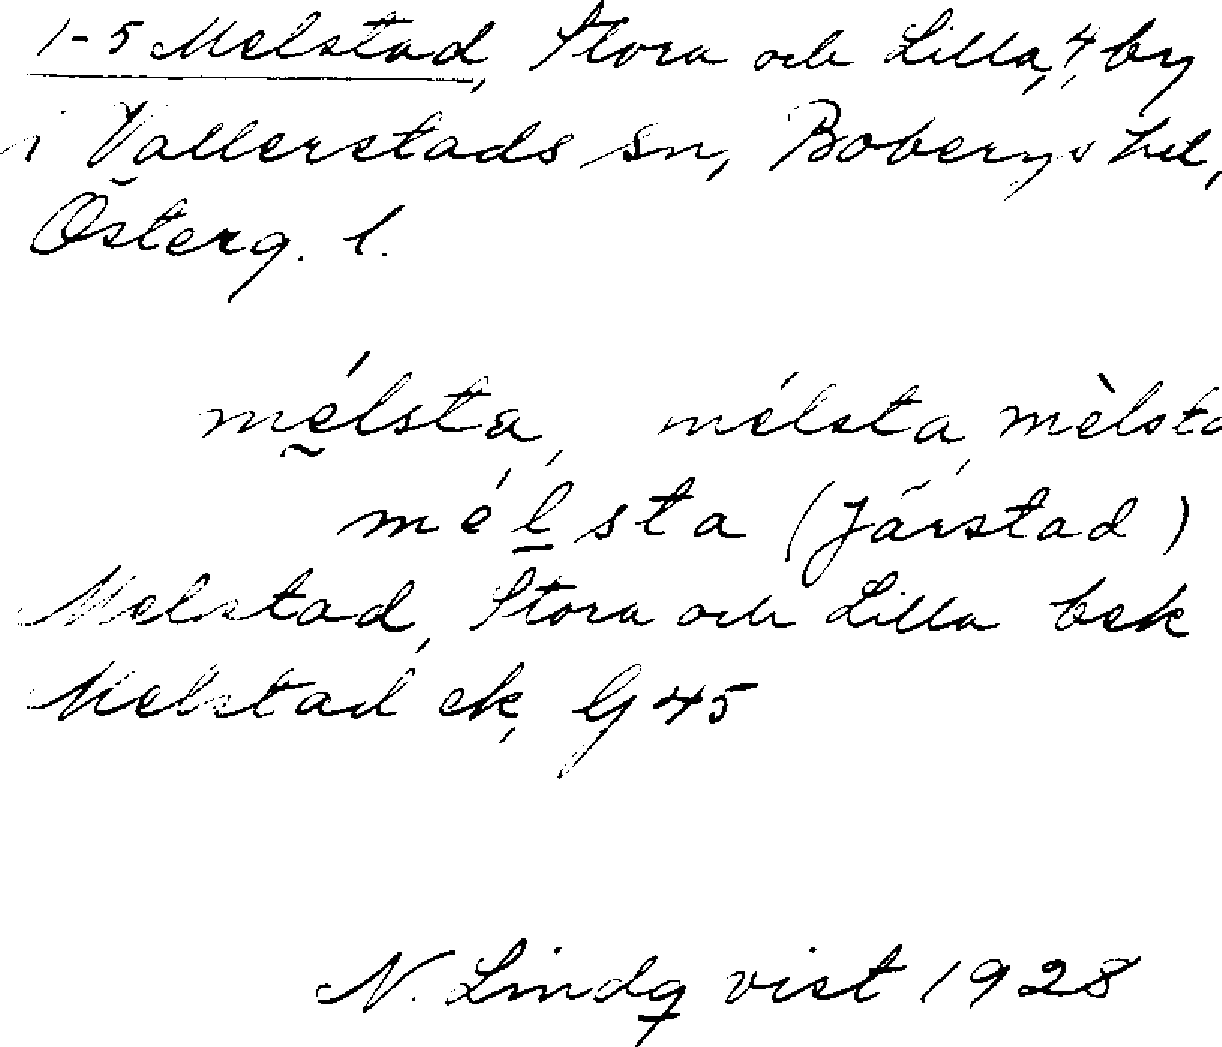 1-5 Melstad, Stora och Lilla, 4, by
i Vallerstads sn, Bobergs hd,
Österg. l.
mélsta, mélsta, mèlsta
mélsta (Järstad)
Melstad, Stora och Lilla bek
Melstad ek, G 45
N. Lindqvist 1928